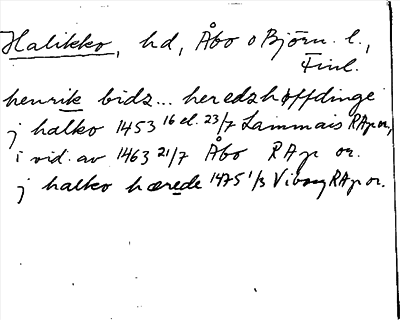 Halikko, hd, Åbo o Björn. l.,
Finl.
henrik bidz... heredzhøffdinge
j halko 1453 16 el. 23/7 Lammais RAp or,
i vid. av 1463 21/7 Åbo RAp or.
j halko hærede 1475 1/3 Viborg RAp or.